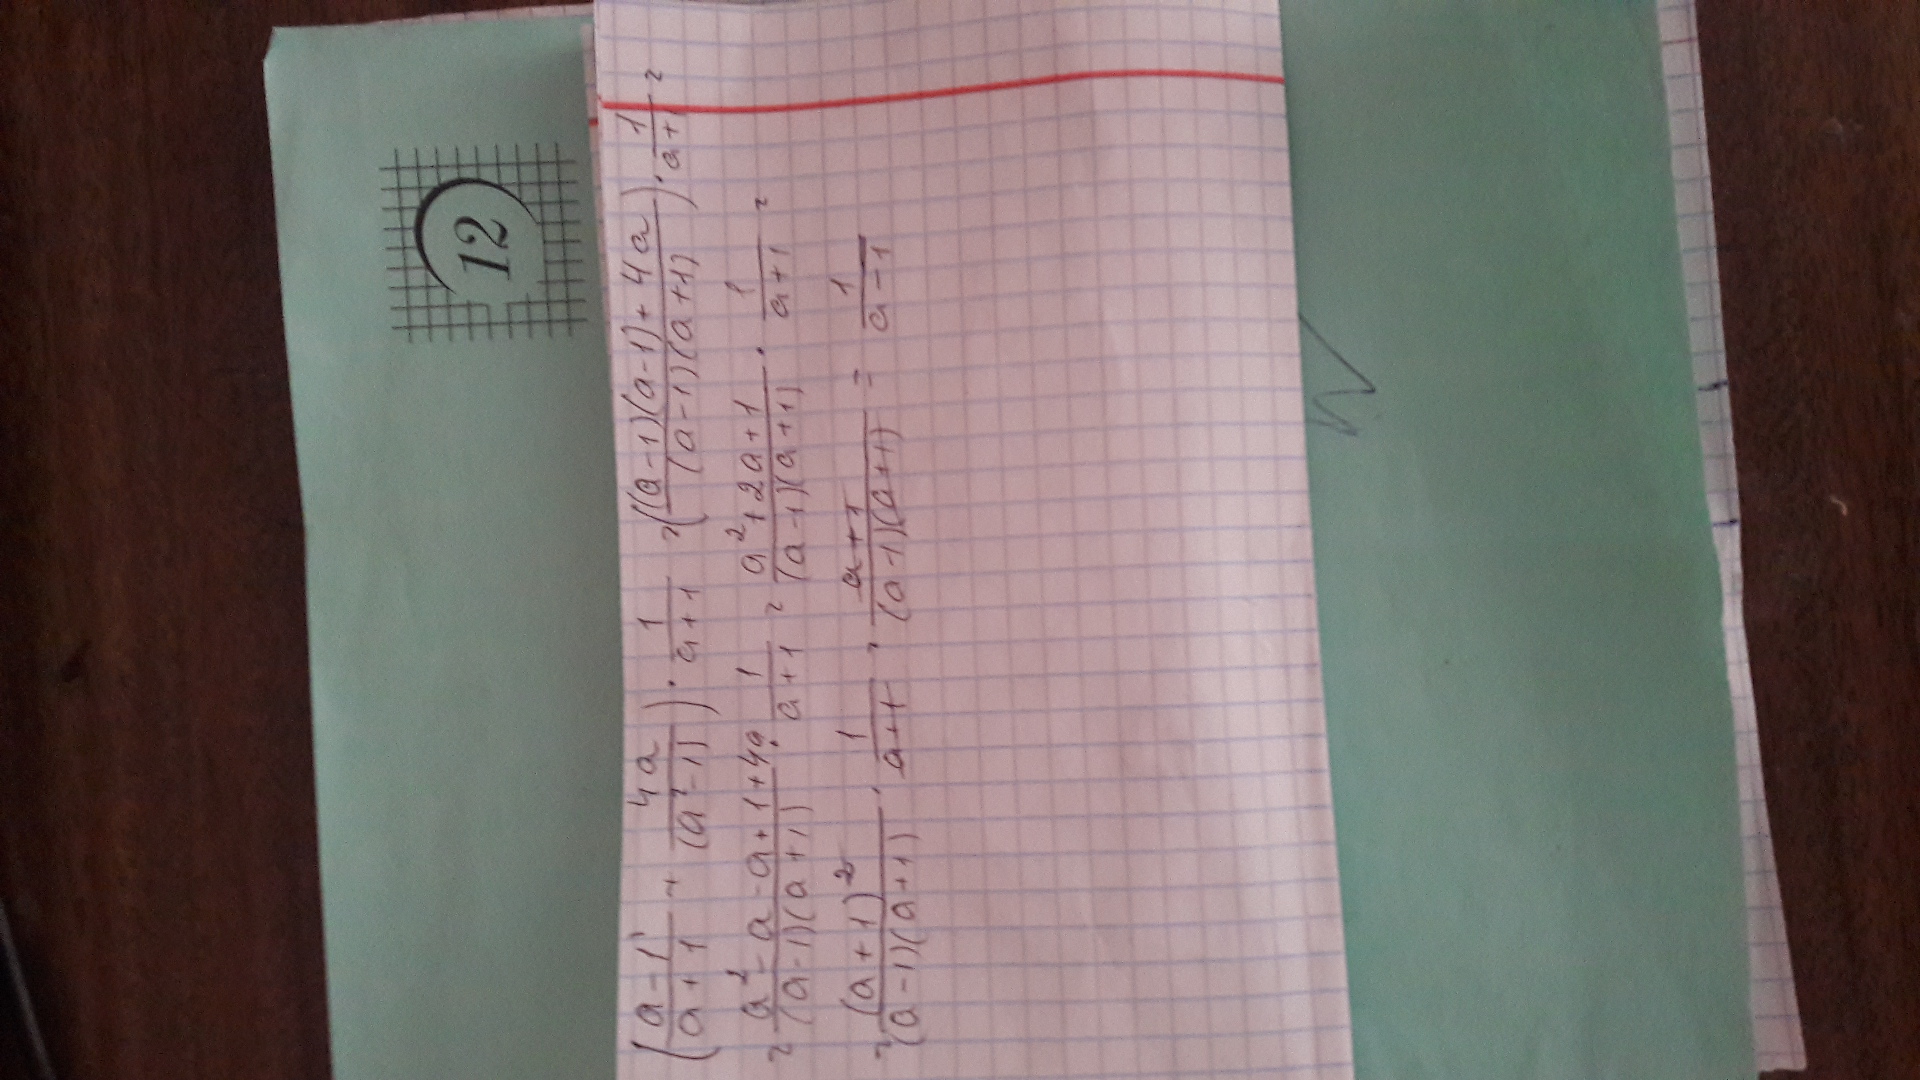 12
((a-1)/(a+1) + 4a/(a²-1)) · 1/(a+1) = (((a-1)(a-1)+4a)/((a-1)(a+1))) · 1/(a+1) =
= (a²-a-a+1+4a)/((a-1)(a+1)) · 1/(a+1) = (a²+2a+1)/((a-1)(a+1)) · 1/(a+1) =
= (a+1)²/((a-1)(a+1)) · 1/(a+1) = (a+1)/((a-1)(a+1)) = 1/(a-1)